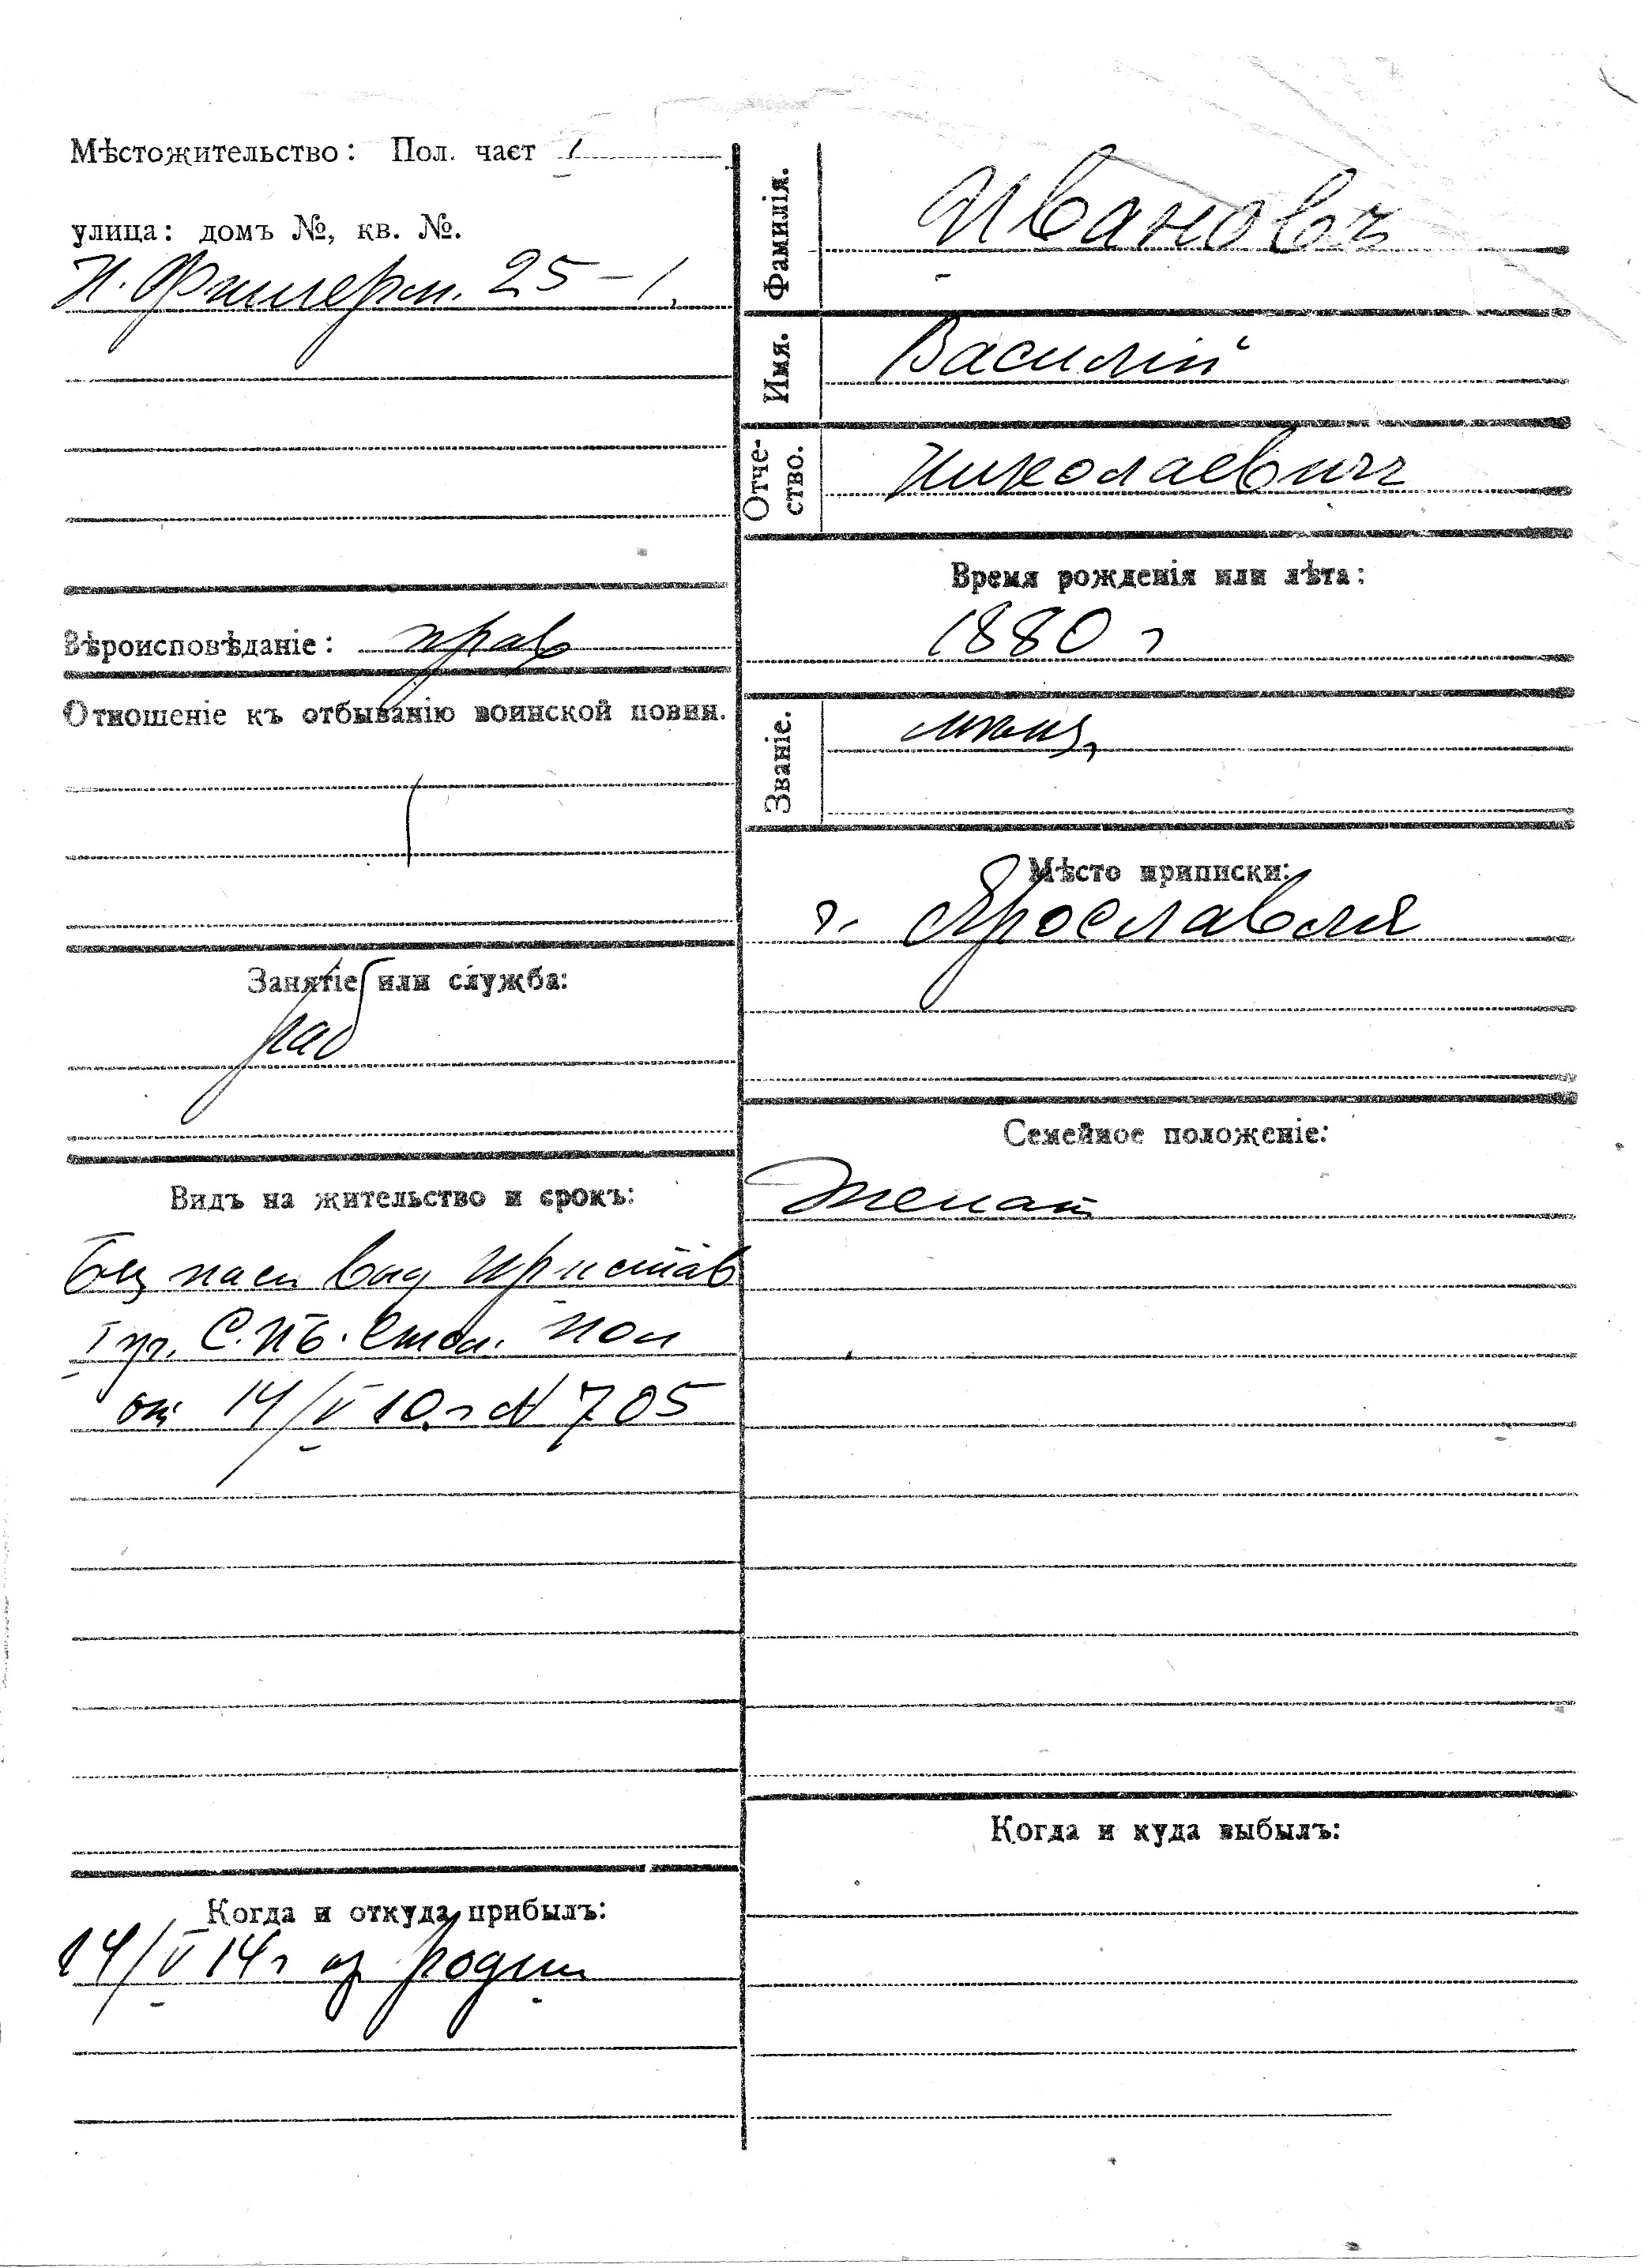 Мѣстожительство: Пол. част I
улица: домъ №, кв. №.
25-1.
Вѣроисповѣданіе: прав
Отношеніе къ отбыванію воинской повин.
Занятіе или служба:
раб
Видъ на жительство и срокъ:
Без пасп вид пристав
I уч. С.ПБ. Стол. пол
от 14/V 10 г N 705
Когда и откуда прибылъ:
14/V 14 г из родин
Фамилія.
Ивановъ
Имя.
Василій
Отче-
ство.
Николаевичъ
Время рожденія или лѣта:
1880 г
Званіе.
мѣщ,
Мѣсто приписки:
г. Ярославля
Семейное положеніе:
Женат
Когда и куда выбылъ: